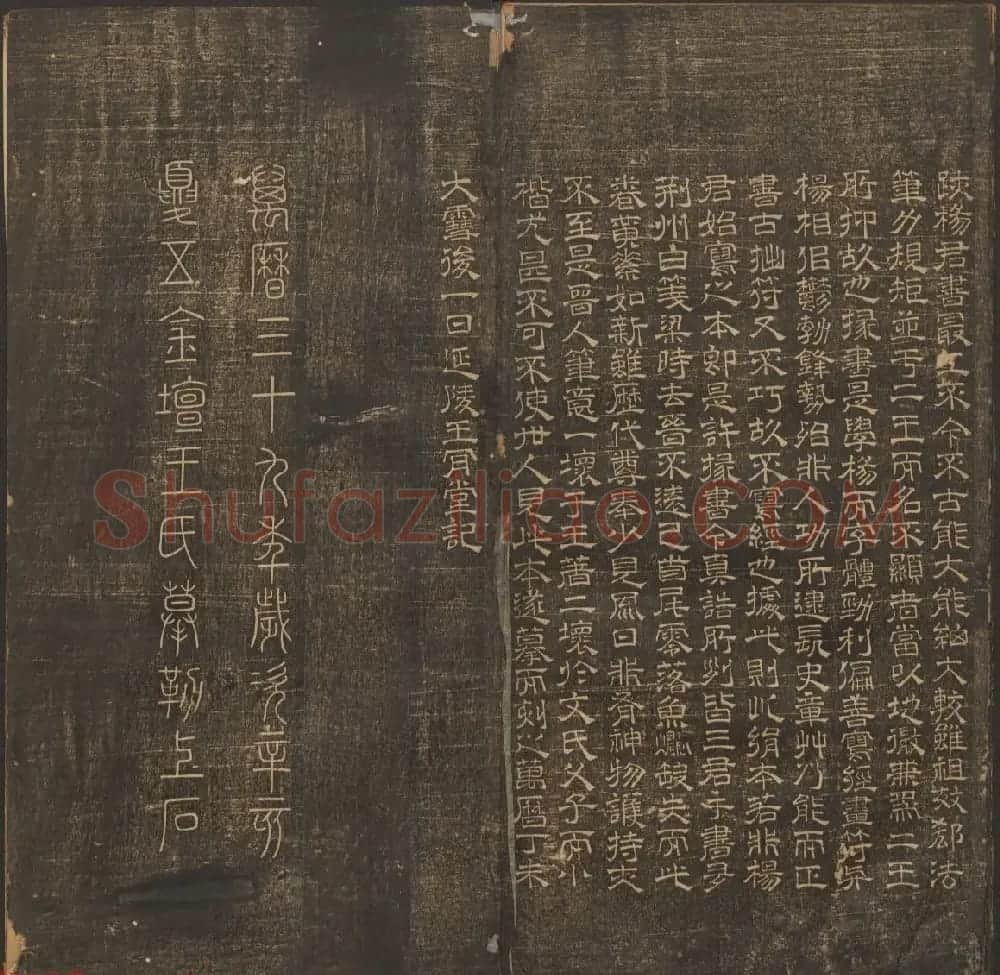 楊君書最工不今不古能大能細大較雖祖效郗法
筆力規矩並于二王而名不顯者當以地微兼爲二王
所抑故也掾書是學楊而字體勁利偏善寫經畫符與
楊相佀鬱勃鋒勢殆非人功所逮長史章艸乃能而正
書古拙符又不巧故不寫經也據此則此絹本若非楊
君始寫之本即是許掾書今真誥所皆三君手書多
荆州白箋梁時去晉不遠已首尾零落魚爛缺失而此
卷黃素如新雖歷代尊奉少見風日非有神物護持決
不至是晉人筆意一壞于王著二壞於文氏父子而小
楷尤甚不可不使世人見此本遂摹而刻之萬曆丁未
大雪後一日延陵王肯堂記
萬曆三十九年歲次辛亥
夏五金壇王氏摹勒上石
Shufaziliao.COM